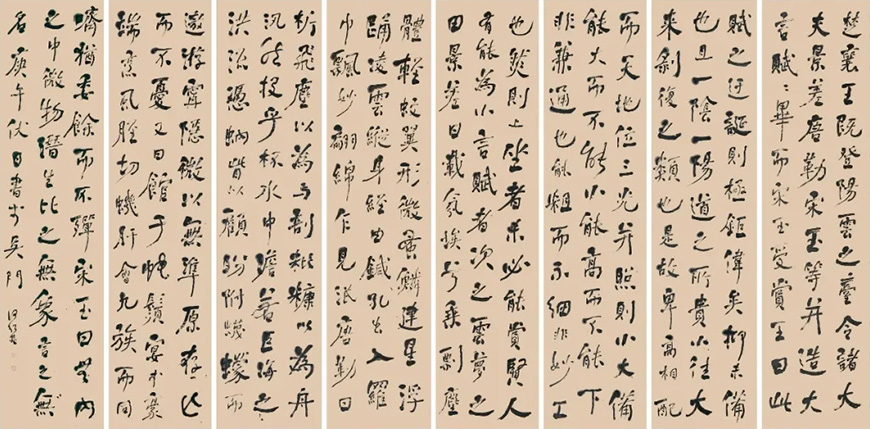 楚襄王既登陽雲之臺令諸大
夫景差唐勒宋玉等并造大
言賦〻畢而宋玉受賞王曰此
賦之迂誕則極鉅偉矣抑未備
也且一陰一陽道之所貴小往大
來剝復之類也是故卑高相配
而天地位三光并照則小大備
能大而不能小能高而不能下
非兼通也能粗而不細非妙工
也然則上坐者未必能賞賢人
有能為小言賦者次之雲夢之
田景差曰載氛埃兮乘剽塵
體輕蚊翼形微蚤鱗建星浮
踊凌雲縱身經由鍼孔出入羅
巾飄妙翩綿乍見泯唐勒曰
析飛塵以為馬剖粃糠以為舟
汎然投乎杯水中澹若巨海之
洪流憑蚋眥以顧盼附蠛蠓而
遨遊寧隱微以無準原存亡
而不憂又曰館于蠅鬚宴于毫
端烹虱脛切蟣肝會九族而同
嚌猶委餘而不殫宋玉曰無內
之中微物潛生比之無象言之無
名庚午伏日書於吳門 何紹基